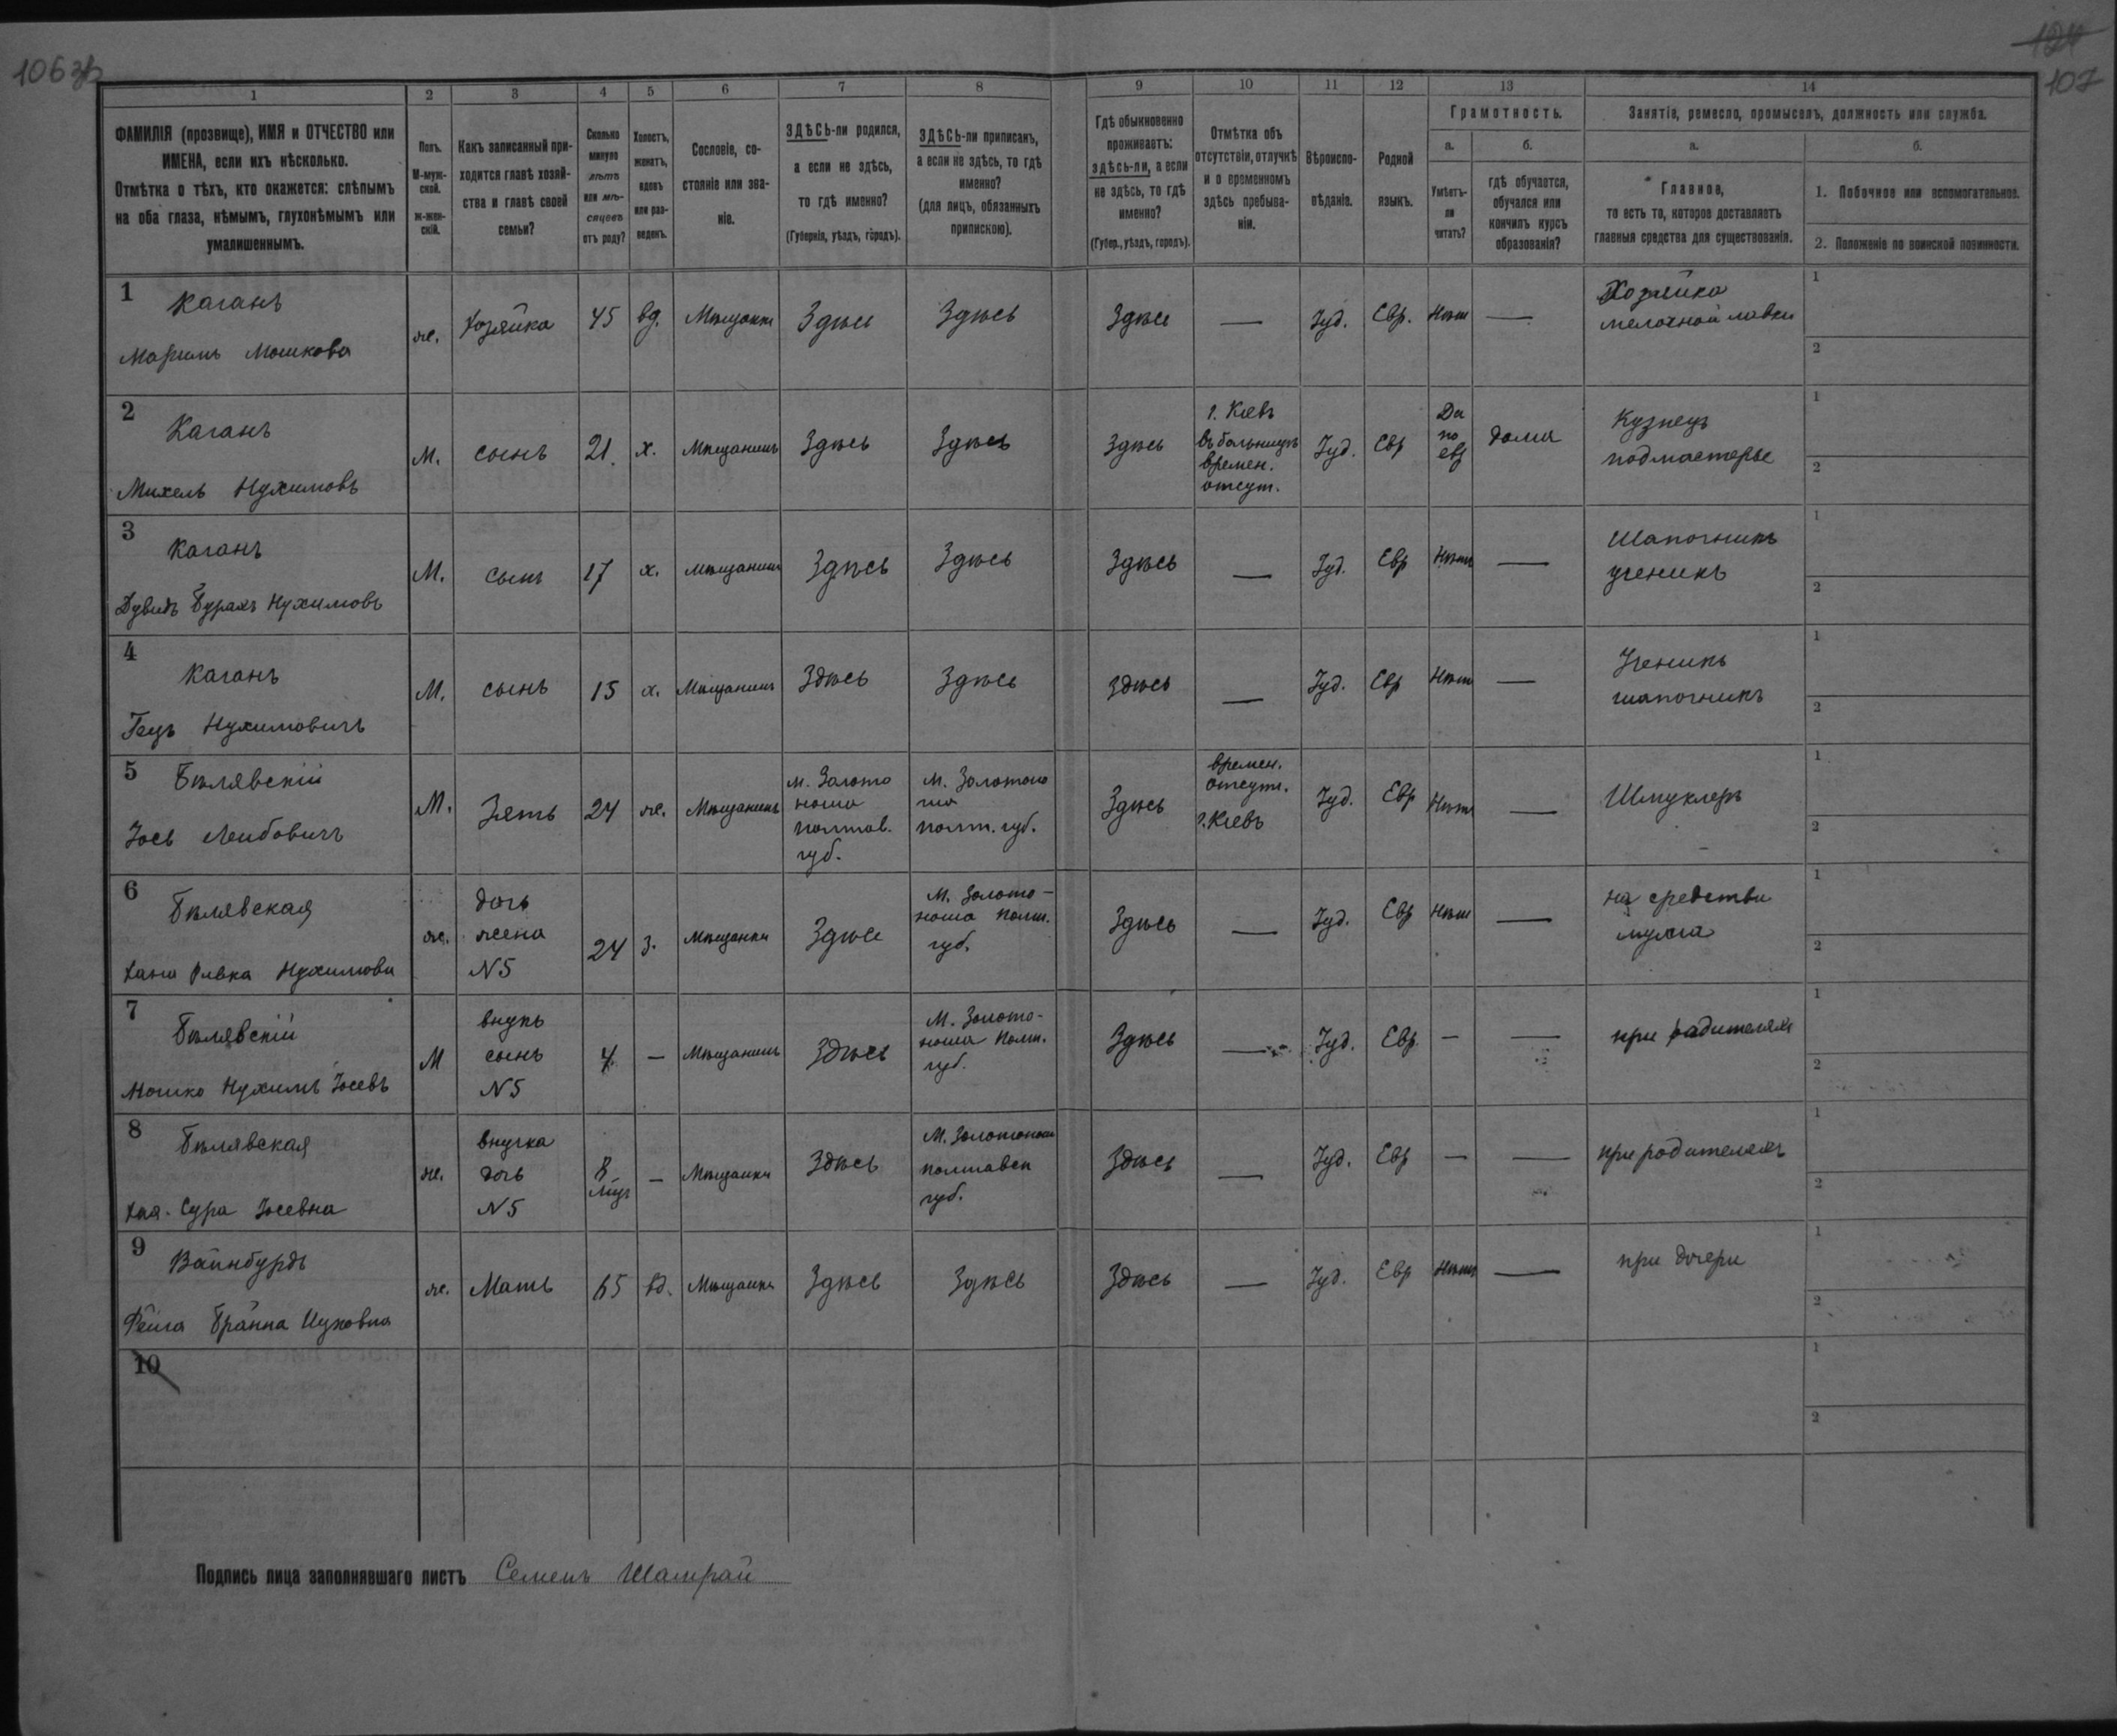 106 зв
124
107
1 2 3 4 5 6 7 8 9 10 11 12 13 14
ФАМИЛІЯ (прозвище), ИМЯ и ОТЧЕСТВО или
ИМЕНА, если ихъ нѣсколько.
Отмѣтка о тѣхъ, кто окажется: слѣпымъ
на оба глаза, нѣмымъ, глухонѣмымъ или
умалишеннымъ.
Полъ.
М-муж-
ской.
ж-жен-
скій.
Какъ записанный при-
ходится главѣ хозяй-
ства и главѣ своей
семьи?
Сколько
минуло
лѣтъ
или мѣ-
сяцевъ
отъ роду?
Холостъ,
женатъ,
вдовъ
или раз-
веденъ.
Сословіе, со-
стояніе или зва-
ніе.
ЗДѢСЬ-ли родился,
а если не здѣсь,
то гдѣ именно?
(Губернія, уѣздъ, городъ).
ЗДѢСЬ-ли приписанъ,
а если не здѣсь, то гдѣ
именно?
(для лицъ, обязанныхъ
припискою).
Гдѣ обыкновенно
проживаетъ:
здѣсь-ли, а если
не здѣсь, то гдѣ
именно?
(Губер., уѣздъ, городъ).
Отмѣтка объ
отсутствіи, отлучкѣ
и о временномъ
здѣсь пребыва-
ніи.
Вѣроиспо-
вѣданіе.
Родной
языкъ.
Грамотность.
а.
Умѣетъ-
ли
читать?
б.
гдѣ обучается,
обучался или
кончилъ курсъ
образованія?
Занятіе, ремесло, промыселъ, должность или служба.
а.
Главное,
то есть то, которое доставляетъ
главныя средства для существованія.
б.
1. Побочное или вспомогательное.
2. Положеніе по воинской повинности.
1
Каганъ
Маримъ Мошкова
же.
Хозяйка
45
вд.
Мѣщанка
Здѣсь
Здѣсь
Здѣсь
—
Іуд.
Евр.
Нѣтъ
—
Хозяйка
мелочной лавки
1
2
2
Каганъ
Михель Нухимовъ
М.
сынъ
21
х.
Мѣщанинъ
Здѣсь
Здѣсь
Здѣсь
г. Кіевъ
въ больницѣ
времен.
отсут.
Іуд.
Евр
Да
по
евр
дома
Кузнецъ
подмастерье
1
2
3
Каганъ
Дувидъ Бурахъ Нухимовъ
М.
сынъ
17
х.
мѣщанинъ
Здѣсь
Здѣсь
Здѣсь
—
Іуд.
Евр
Нѣтъ
—
Шапочникъ
ученикъ
1
2
4
Каганъ
Гецъ Нухимовичъ
М.
сынъ
15
х.
Мѣщанинъ
Здѣсь
Здѣсь
Здѣсь
—
Іуд.
Евр
Нѣтъ
—
Ученикъ
шапочникъ
1
2
5
Бѣлявскій
Іось Лейбовичъ
М.
Зять
24
же.
Мѣщанинъ
м. Золото
ноша
полтав.
губ.
М. Золотоно
ша
полт. губ.
Здѣсь
времен.
отсут.
г. Кіевъ
Іуд.
Евр
Нѣтъ
—
Шмуклеръ
1
2
6
Бѣлявская
Хана Ривка Нухимова
же.
дочь
жена
N 5
24
з.
Мѣщанка
Здѣсь
М. Золото-
ноша Полт.
губ.
Здѣсь
—
Іуд.
Евр
Нѣтъ
—
на средства
мужа
1
2
7
Бѣлявскій
Мошко Нухимъ Іосевъ
М
внукъ
сынъ
N 5
4
—
Мѣщанинъ
Здѣсь
М. Золото-
ноша Полт.
губ.
Здѣсь
—
Іуд.
Евр
—
—
при родителяхъ
1
2
8
Бѣлявская
Хая-Сура Іосевна
же.
внучка
дочь
N 5
8
мѣц
—
Мѣщанка
Здѣсь
М. Золотоноша
полтавск
губ.
Здѣсь
—
Іуд.
Евр
—
—
при родителяхъ
1
2
9
Вайнбурдъ
Фейга Бранна Ицковна
же.
Мать
65
вд.
Мѣщанка
Здѣсь
Здѣсь
Здѣсь
—
Іуд.
Евр
Нѣтъ
—
при дочери
1
2
10
1
2
Подпись лица заполнявшаго листъ Семенъ Шамрай